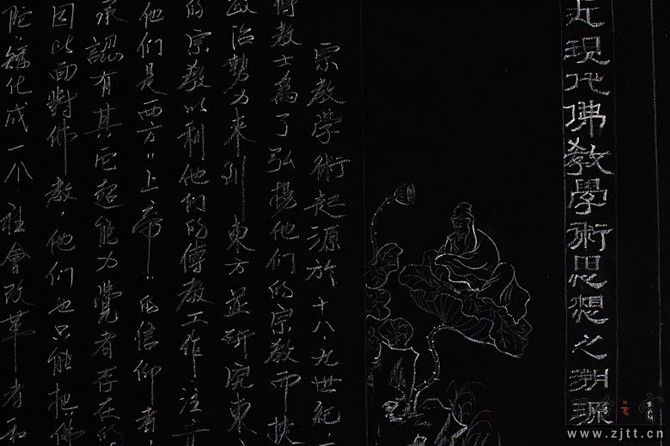 近現代佛教學術思想之朔源
宗教學術起源於十八·九世紀
傳教士為了弘揚他們的宗教而挾
政治勢力來到東方並研究東
的宗教以利他們的傳教工作·注意
他們是西方"上帝"的信仰者
承認有其它超能力覺者存在的
因此面對佛教,他們也只能把佛
陀·矮化成一个·社會改革者和
www.zjtt.cn